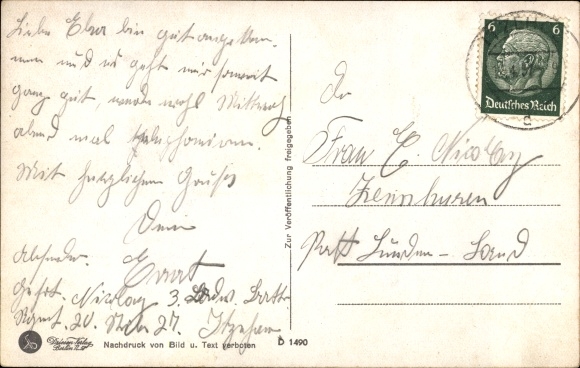 Liebe Elsa bin gut angekom-
men und es geht mir soweit
ganz gut, werde wohl Mittwoch
abend mal telephonieren.
Mit herzlichem Gruß
Dein
Absender. Ernst
Gefr. Nicolay 3. Batt
Rgmt. 20. 27. Itzehoe
Nachdruck von Bild u. Text verboten
D 1490
Zur Veröffentlichung freigegeben
6 6
Deutsches Reich
An
Frau E. Nicolay
Post Lunden - Land